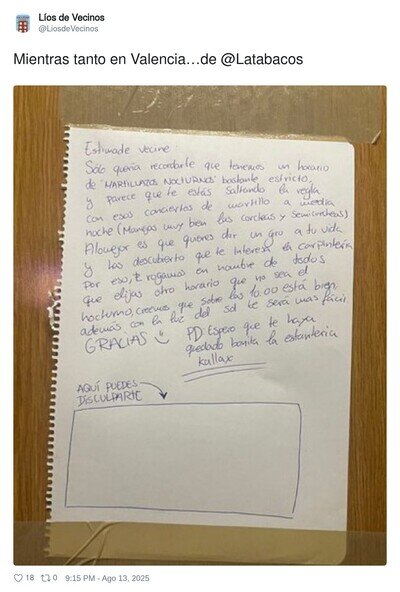 Líos de Vecinos
@LiosdeVecinos
Mientras tanto en Valencia…de @Latabacos
Estimade vecine:
Sólo quería recordarte que tenemos un horario
de "MARTILLAZOS NOCTURNOS" bastante estricto,
y parece que te estás saltando la regla
con esos conciertos de martillo a media
noche (Manejas muy bien las corcheas y semicorcheas)
Alomejor es que quieres dar un giro a tu vida
y has descubierto que te interesa la carpintería
Por eso, te rogamos en nombre de todos
que elijas otro horario que no sea el
nocturno, creemos que sobre las 10:00 está bien,
además con la luz del sol te será más fácil
GRACIAS
PD. Espero que te haya
quedado bonita la estantería
Kallax
AQUÍ PUEDES
DISCULPARTE
18 0 9:15 PM - Ago 13, 2025